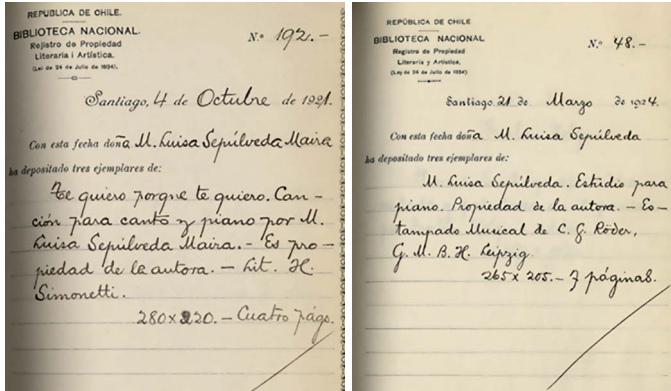 REPUBLICA DE CHILE.
BIBLIOTECA NACIONAL.
Rejistro de Propiedad
Literaria i Artística.
(Lei de 24 de Julio de 1834).
N.º 192.-
Santiago, 4 de Octubre de 1921.
Con esta fecha doña M. Luisa Sepúlveda Maira
ha depositado tres ejemplares de:
Te quiero porque te quiero. Can-
ción para canto y piano por M.
Luisa Sepúlveda Maira. - Es pro-
piedad de la autora. - Lit. H.
Simonetti.
280 x 220. - Cuatro págs.
REPÚBLICA DE CHILE
BIBLIOTECA NACIONAL.
Registro de Propiedad
Literaria y Artística,
(Ley de 24 de Julio de 1834)
N.º 48.-
Santiago, 21 de Marzo de 1924.
Con esta fecha doña M. Luisa Sepúlveda
ha depositado tres ejemplares de:
M. Luisa Sepúlveda. Estudio para
piano. Propiedad de la autora. - Es-
tampado Musical de C. G. Röder,
G. M. B. H. Leipzig.
265 x 205. - 7 páginas.